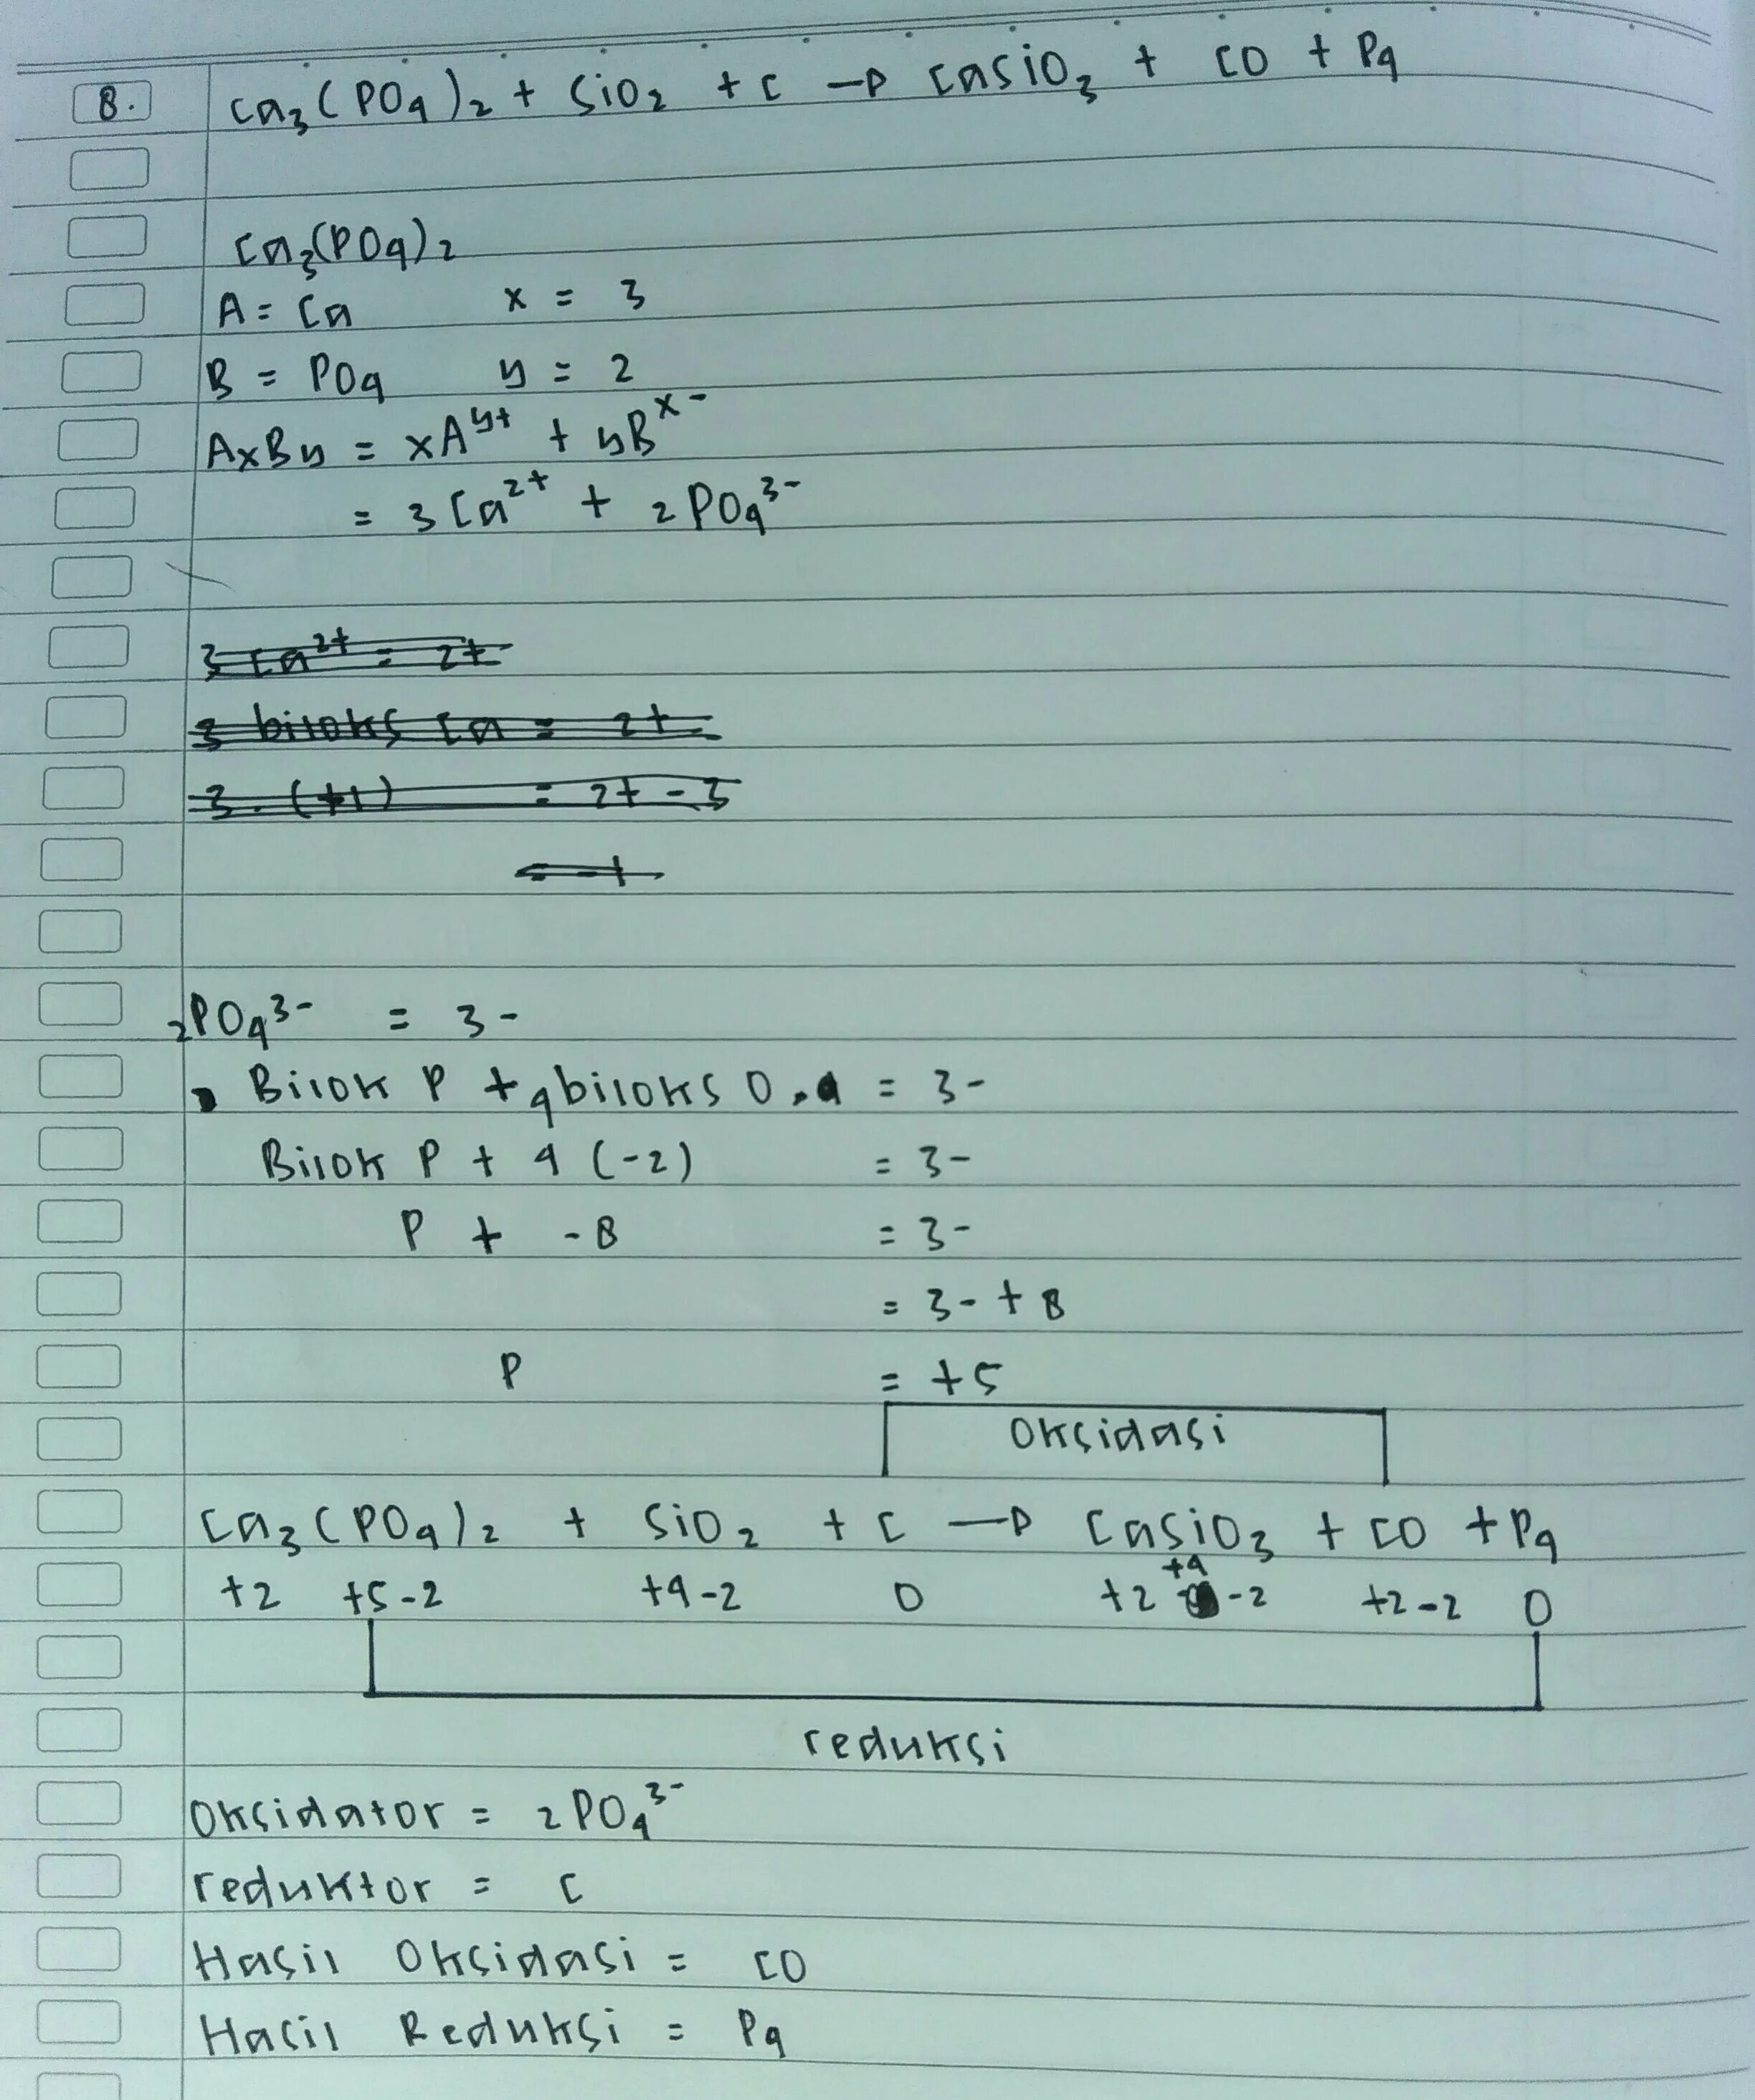 8. Ca₃(PO₄)₂ + SiO₂ + C → CaSiO₃ + CO + P₄
Ca₃(PO₄)₂
A = Ca x = 3
B = PO₄ y = 2
AxBy = xA^y+ + yB^x-
= 3Ca²⁺ + 2PO₄³⁻
3 Ca²⁺ = 2+
3 biloks Ca = 2+
3 . (+1) = 2+ - 3
2PO₄³⁻ = 3-
Bilok P + 4biloks O = 3-
Bilok P + 4 (-2) = 3-
P + -8 = 3-
= 3- + 8
P = +5
Oksidasi
Ca₃(PO₄)₂ + SiO₂ + C → CaSiO₃ + CO + P₄
+2 +5-2 +4-2 0 +2 +4 -2 +2-2 0
reduksi
Oksidator = 2PO₄³⁻
reduktor = C
Hasil Oksidasi = CO
Hasil Reduksi = P₄